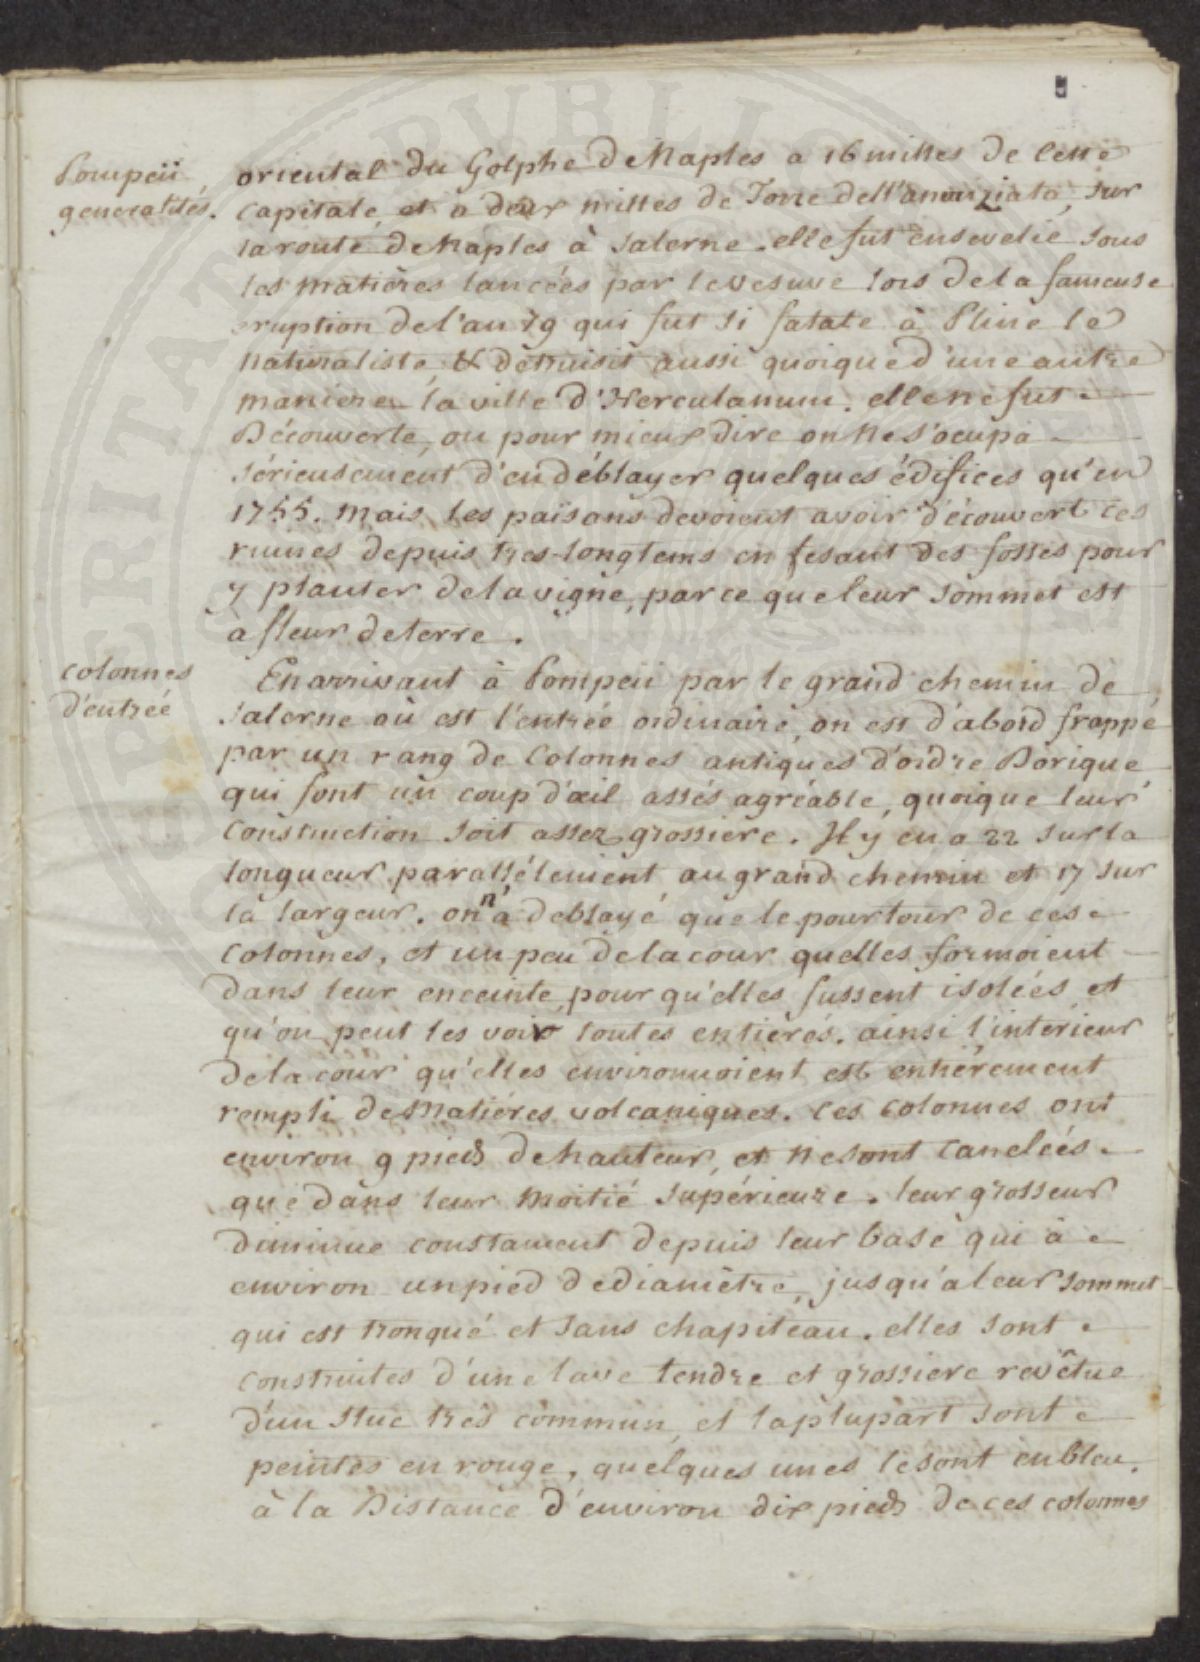 Pompeii
generalités.
oriental du Golphe de Naples a 16 milles de cette
capitale et a deux milles de Torre dell'anunziata, sur
la route de Naples à Salerne. elle fut ensevelie sous
les matières lancées par le vesuve lors de la fameuse
eruption de l'an 79 qui fut si fatale à Pline le
naturaliste, & detruisit aussi quoique d'une autre
maniere la ville d'Herculanum. elle ne fut
Découverte, ou pour mieux dire on ne s'ocupa
sérieusement d'en déblayer quelques édifices qu'en
1755. mais les païsans devoient avoir découvert ces
ruines depuis tres-longtems en fesant des fosses pour
y planter de la vigne, parce que leur sommet est
à fleur de terre.
colonnes
d'entrée
En arrivant à Pompeii par le grand chemin de
Salerne où est l'entrée ordinaire, on est d'abord frappé
par un rang de Colonnes antiques d'ordre Dorique
qui font un coup d'œil assés agréable, quoique leur
construction soit assez grossiere. Il y en a 22 sur la
longueur parallélement au grand chemin et 17 sur
la largeur. on n'a deblayé que le pourtour de ces
colonnes, et un peu de la cour quelles formoient
dans leur enceinte, pour qu'elles fussent isolées et
qu'on peut les voir toutes entiéres. ainsi l'interieur
de la cour qu'elles environnoient est entiérement
rempli de Matiéres volcaniques. Ces colonnes ont
environ 9 pieds de hauteur, et ne sont canelées
que dans leur moitié supérieure. leur grosseur
diminue constament depuis leur base qui à
environ un pied de diamêtre, jusqu'a leur sommet
qui est tronqué et sans chapiteau. elles sont
construites d'une lave tendre et grossiere revêtue
d'un stuc très commun, et la plupart sont
peintes en rouge, quelques unes le sont en bleu.
à la Distance d'environ dix pieds de ces colonnes